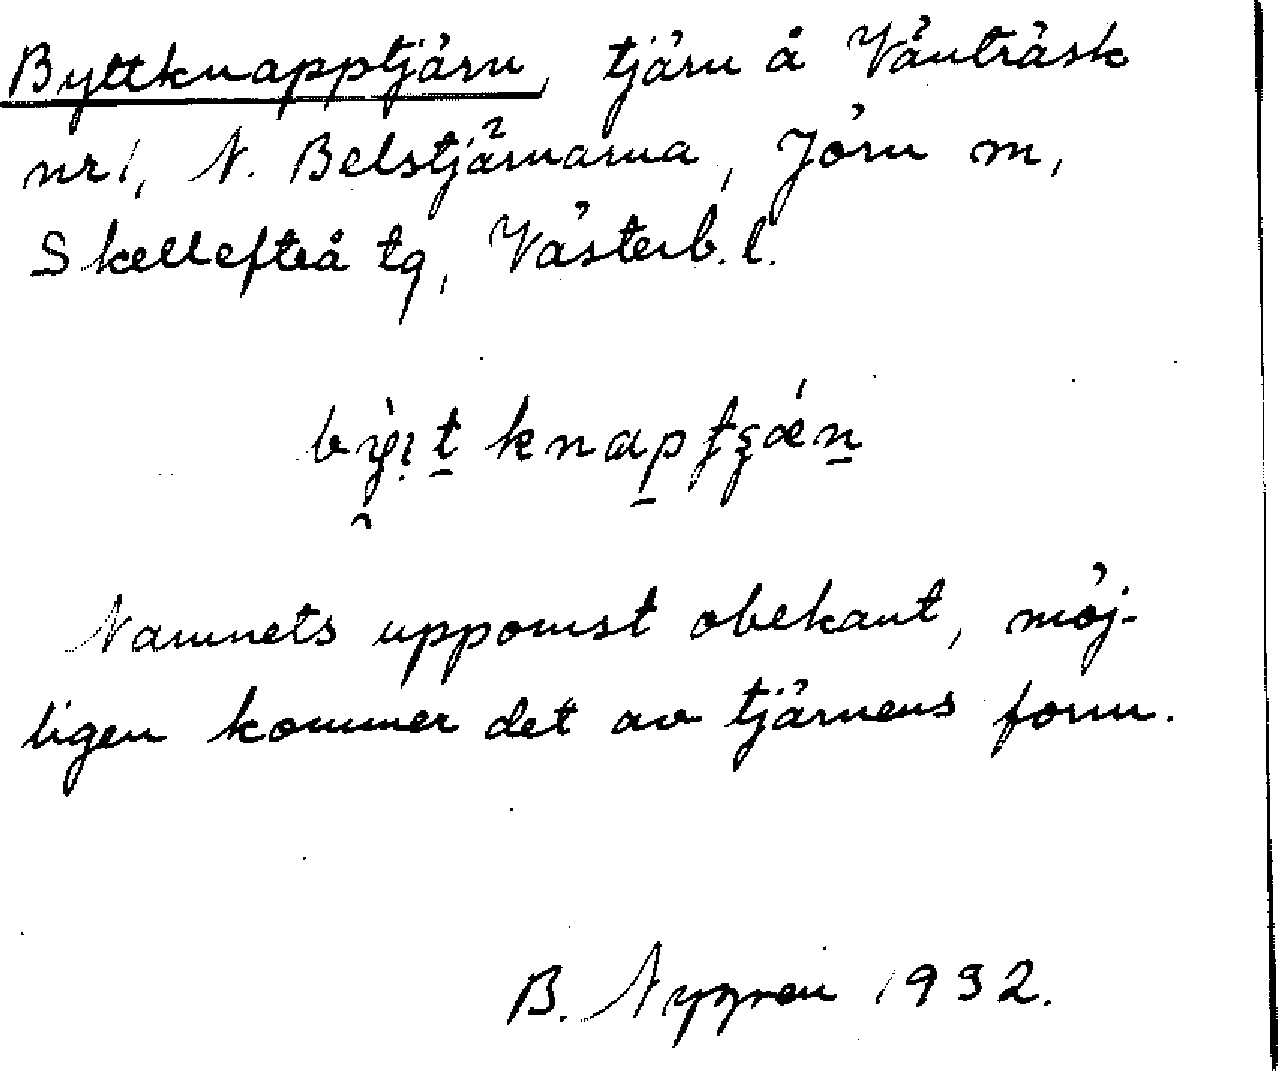 Byttknapptjärn, tjärn å Vänträsk
nr 1, N. Belstjärnarna, Jörn m,
Skellefteå tg, Västerb. l.
Namnets uppomst obekant, möj-
ligen kommer det av tjärnens form.
B. Nygren 1932.